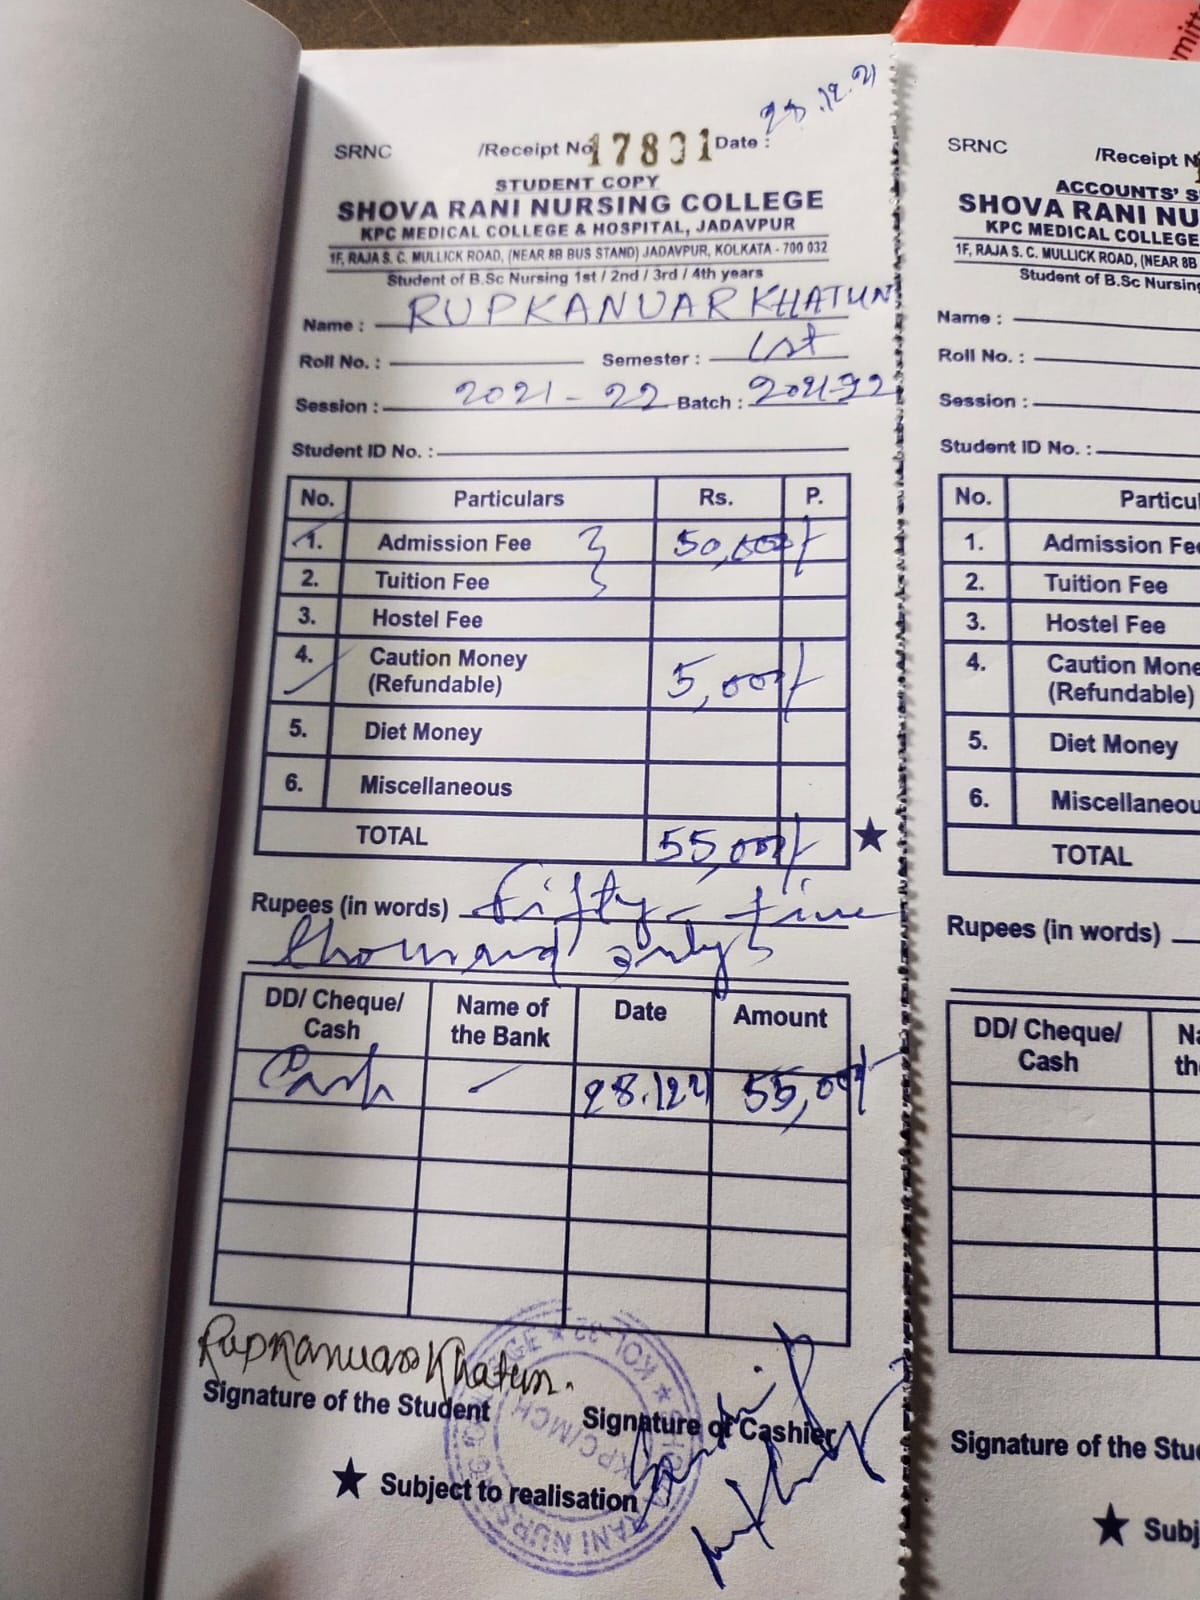 28.12.21
SRNC /Receipt No 17801 Date :
STUDENT COPY
SHOVA RANI NURSING COLLEGE
KPC MEDICAL COLLEGE & HOSPITAL, JADAVPUR
1F, RAJA S. C. MULLICK ROAD, (NEAR 8B BUS STAND) JADAVPUR, KOLKATA - 700 032
Student of B.Sc Nursing 1st / 2nd / 3rd / 4th years
Name : RUPKANUAR KHATUN
Roll No. : Semester : 1st
Session : 2021 - 22 Batch : 2021-22
Student ID No. :
No. Particulars Rs. P.
1. Admission Fee 50,000/-
2. Tuition Fee
3. Hostel Fee
4. Caution Money 5,000/-
(Refundable)
5. Diet Money
6. Miscellaneous
TOTAL 55,000/- ★
Rupees (in words) Fifty - five
thousand only
DD/ Cheque/ Name of Date Amount
Cash the Bank
Cash - 28.12.21 55,000/-
Rupkanuar Khatun.
Signature of the Student Signature of Cashier
★ Subject to realisation
SHOVA RANI NURSING COLLEGE ★ KOL-32 ★
KPC/MCH
SRNC /Receipt N
ACCOUNTS' S
SHOVA RANI NU
KPC MEDICAL COLLEGE
1F, RAJA S. C. MULLICK ROAD, (NEAR 8B
Student of B.Sc Nursing
Name :
Roll No. :
Session :
Student ID No. :
No. Particul
1. Admission Fe
2. Tuition Fee
3. Hostel Fee
4. Caution Mone
(Refundable)
5. Diet Money
6. Miscellaneou
TOTAL
Rupees (in words)
DD/ Cheque/ Na
Cash th
Signature of the Stu
★ Subj